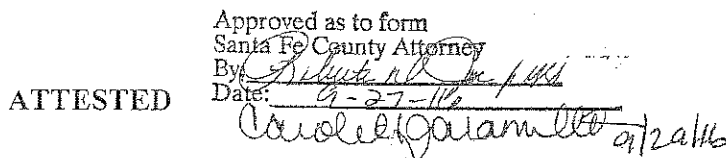 Approved as to form
Santa Fe County Attorney
By
Date: 9-27-16
ATTESTED
9/29/16